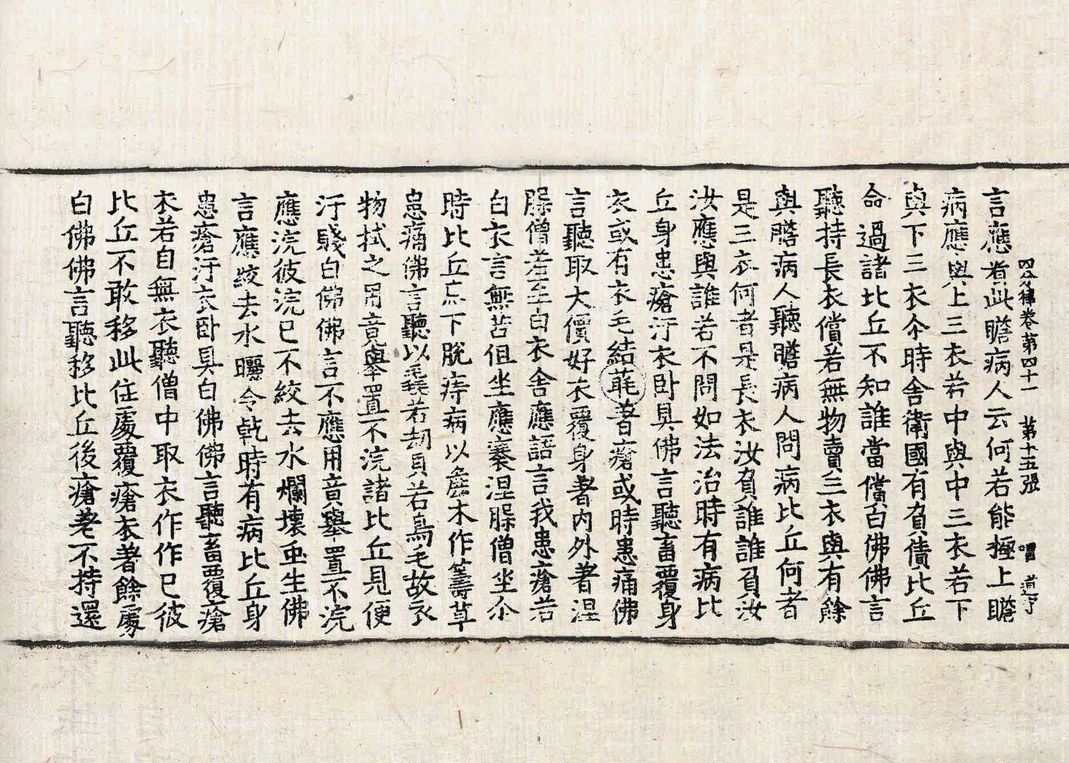 四分律卷第四十一 第十五張 道了
言應看此瞻病人云何若能極上瞻
病應與上三衣若中與中三衣若下
與下三衣尒時舍衛國有負債比丘
命過諸比丘不知誰當償白佛佛言
聽持長衣償若無物賣三衣與有餘
與瞻病人聽瞻病人問病比丘何者
是三衣何者是長衣汝負誰誰負汝
汝應與誰若不問如法治時有病比
丘身患瘡汙衣卧具佛言聽畜覆身
衣或有衣毛結毦著瘡或時患痛佛
言聽取大價好衣覆身著內外著涅
臊僧若至白衣舍應語言我患瘡若
白衣言無苦但坐應褰涅臊僧坐尒
時比丘忘下脫痔病以麁木作籌草
患痛佛言聽以毳若劫貝若鳥毛故衣
物拭之用竟舉置不浣諸比丘見便
汙賤白佛佛言不應用竟舉置不浣
應浣彼浣已不絞去水爛壞虫生佛
言應絞去水曬令乾時有病比丘身
患瘡汙衣卧具白佛佛言聽畜覆瘡
衣若自無衣聽僧中取衣作作已彼
比丘不敢移此住處覆瘡衣著餘處
白佛佛言聽移比丘後瘡差不持還